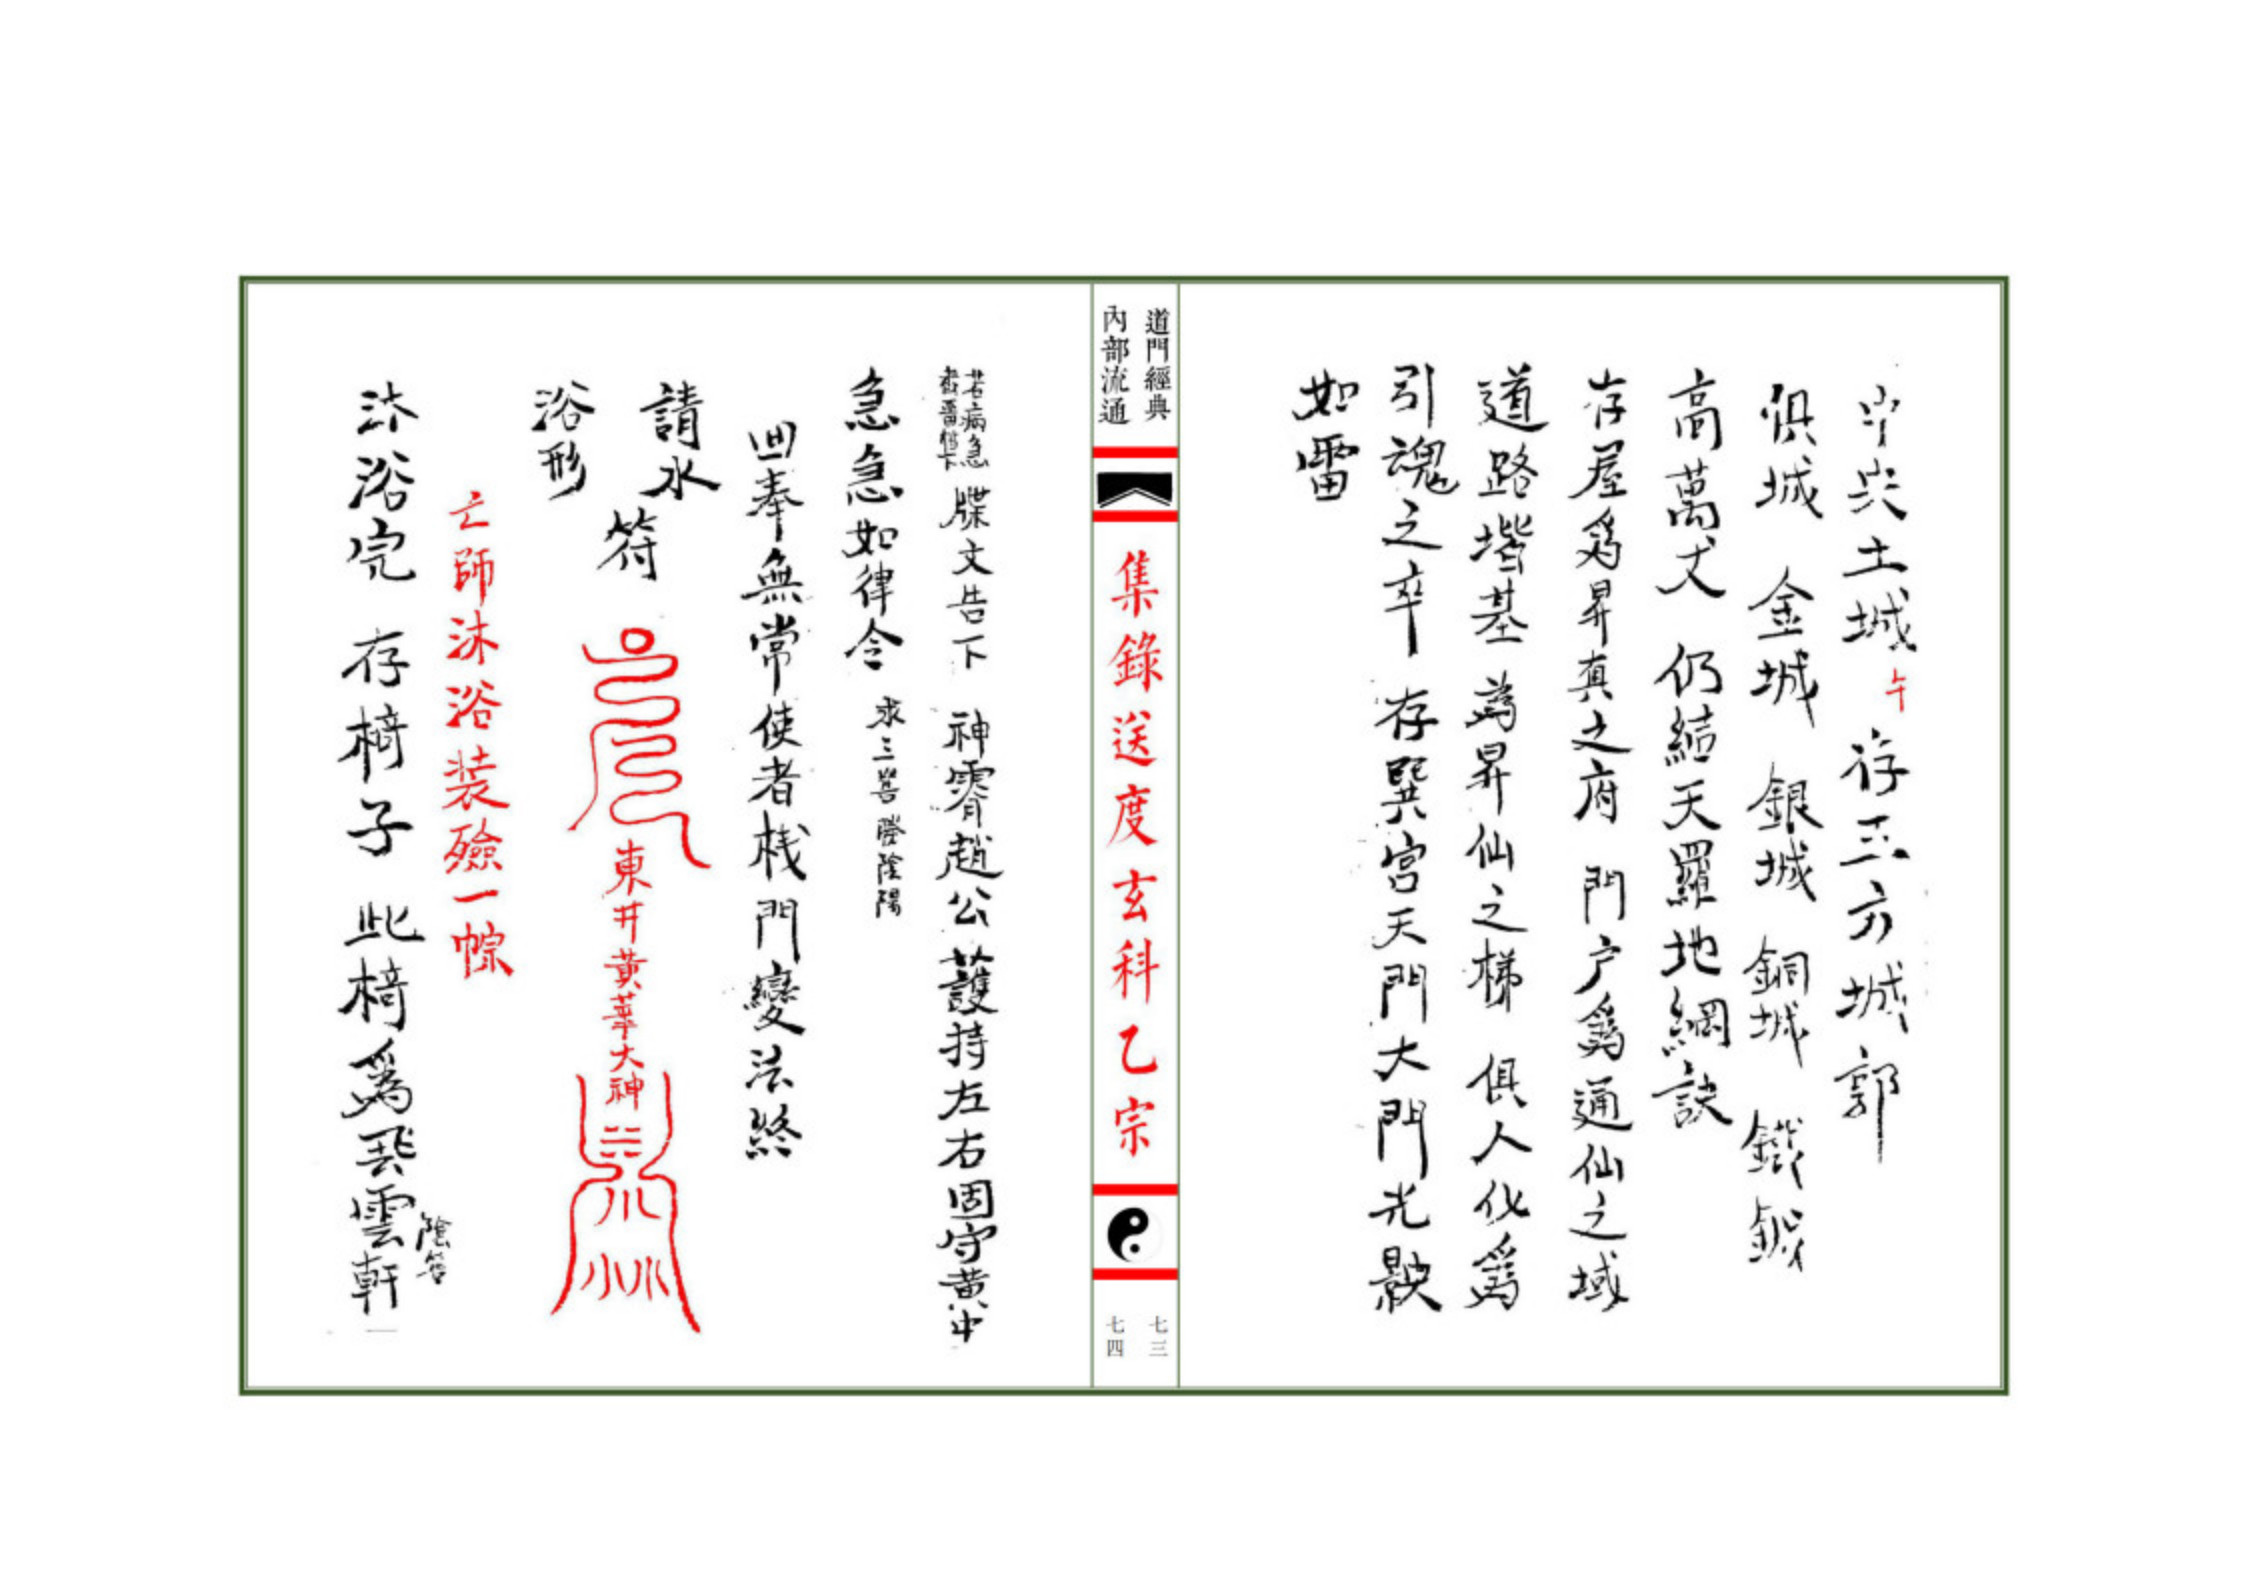 中央土城 午 存五方城郭
俱城 金城 銀城 銅城 鐵城
高萬丈 仍結天羅地網訣
存屋爲昇真之府 門户爲通仙之域
道路堦基為昇仙之梯 俱人化爲
引魂之卒 存巽宮天門大門光
如雷
道門經典
內部流通
集錄送度玄科乙宗
七三
七四
若病急
牒文告下 神霄趙公護持左右固守黃中
急急如律令 求三 陰陽
回奉無常使者栈門變法終
請水
浴形
符
東井黃華大神
亡師沐浴装殮一悰
沐浴完 存椅子 此椅爲飛雲軒
陰